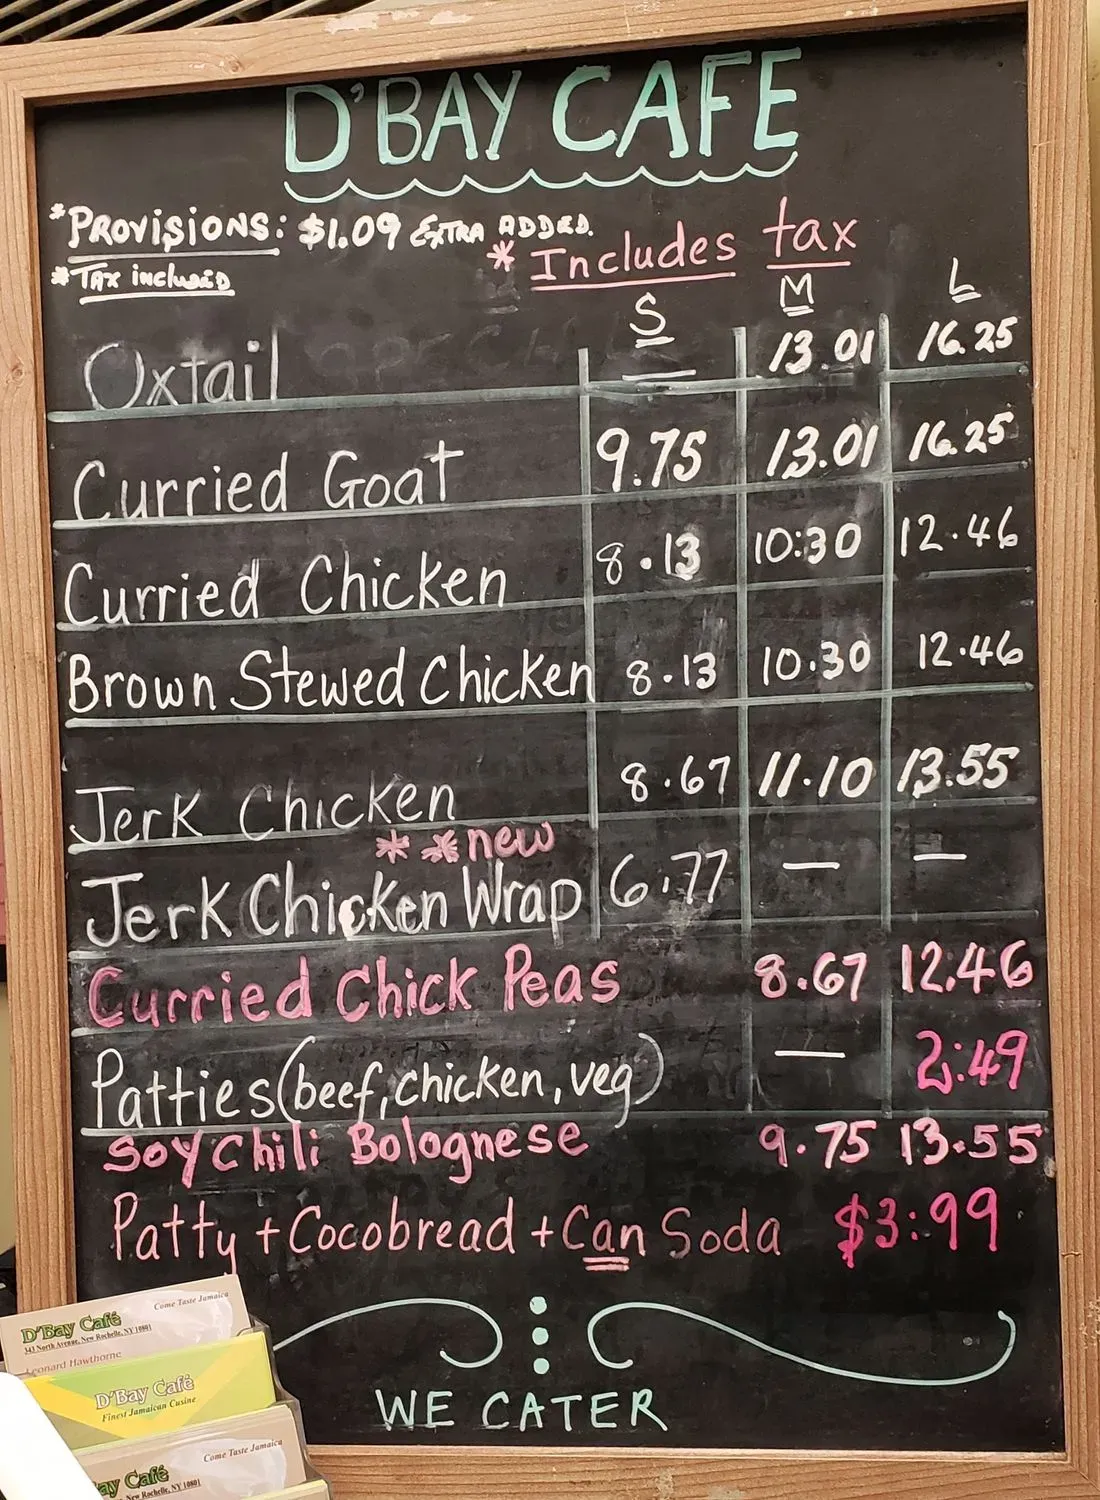 D'BAY CAFE
*PROVISIONS: $1.09 EXTRA ADDED.
*TAX INCLUDED
* Includes tax
S M L
Oxtail — 13.01 16.25
Curried Goat 9.75 13.01 16.25
Curried Chicken 8.13 10:30 12.46
Brown Stewed Chicken 8.13 10.30 12.46
Jerk Chicken 8.67 11.10 13.55
* * new
Jerk Chicken Wrap 6.77 — —
Curried Chick Peas 8.67 12.46
Patties (beef, chicken, veg) — 2:49
Soy Chili Bolognese 9.75 13.55
Patty + Cocobread + Can Soda $3:99
WE CATER
Come Taste Jamaica
D'Bay Café
343 North Avenue, New Rochelle, NY 10801
Leonard Hawthorne
D'Bay Café
Finest Jamaican Cusine
Come Taste Jamaica
Bay Café
New Rochelle, NY 10801